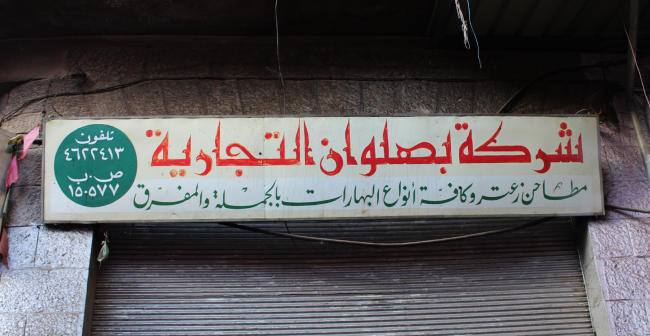 شركة بصلوان التجارية
مطاحن زعتر وكافة أنواع البهارات بالجملة والمفرق
تلفون
٤٦٢٢٤١٣
ص.ب
١٥٠٥٧٧